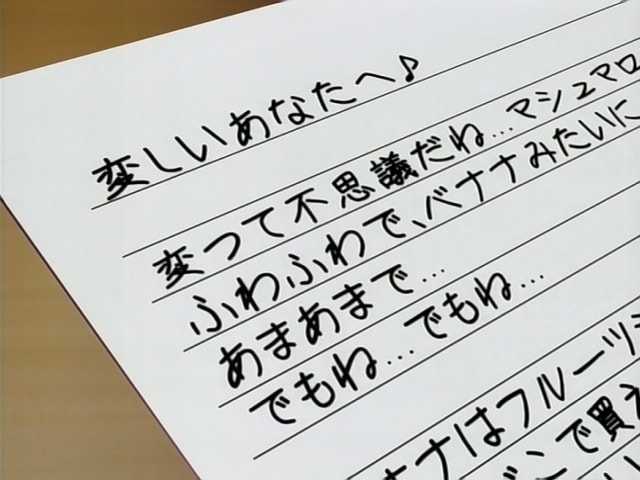 変しいあなたへ♪
変って不思議だね…マシュマロ
ふわふわで、バナナみたいに
あまあまで…
でもね…でもね…
ナはフルーツ
こで買え